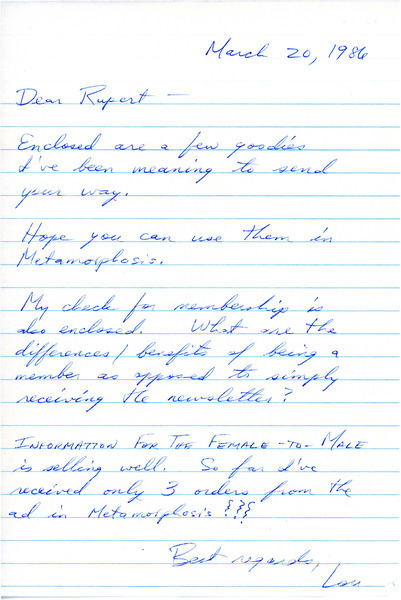 March 20, 1986
Dear Rupert —
Enclosed are a few goodies
I've been meaning to send
your way.
Hope you can use them in
Metamorphosis.
My check for membership is
also enclosed. What are the
differences/benefits of being a
member as opposed to simply
receiving the newsletter?
INFORMATION FOR THE FEMALE-TO-MALE
is selling well. So far I've
received only 3 orders from the
ad in Metamorphosis !?!?!
Best regards,
Lou